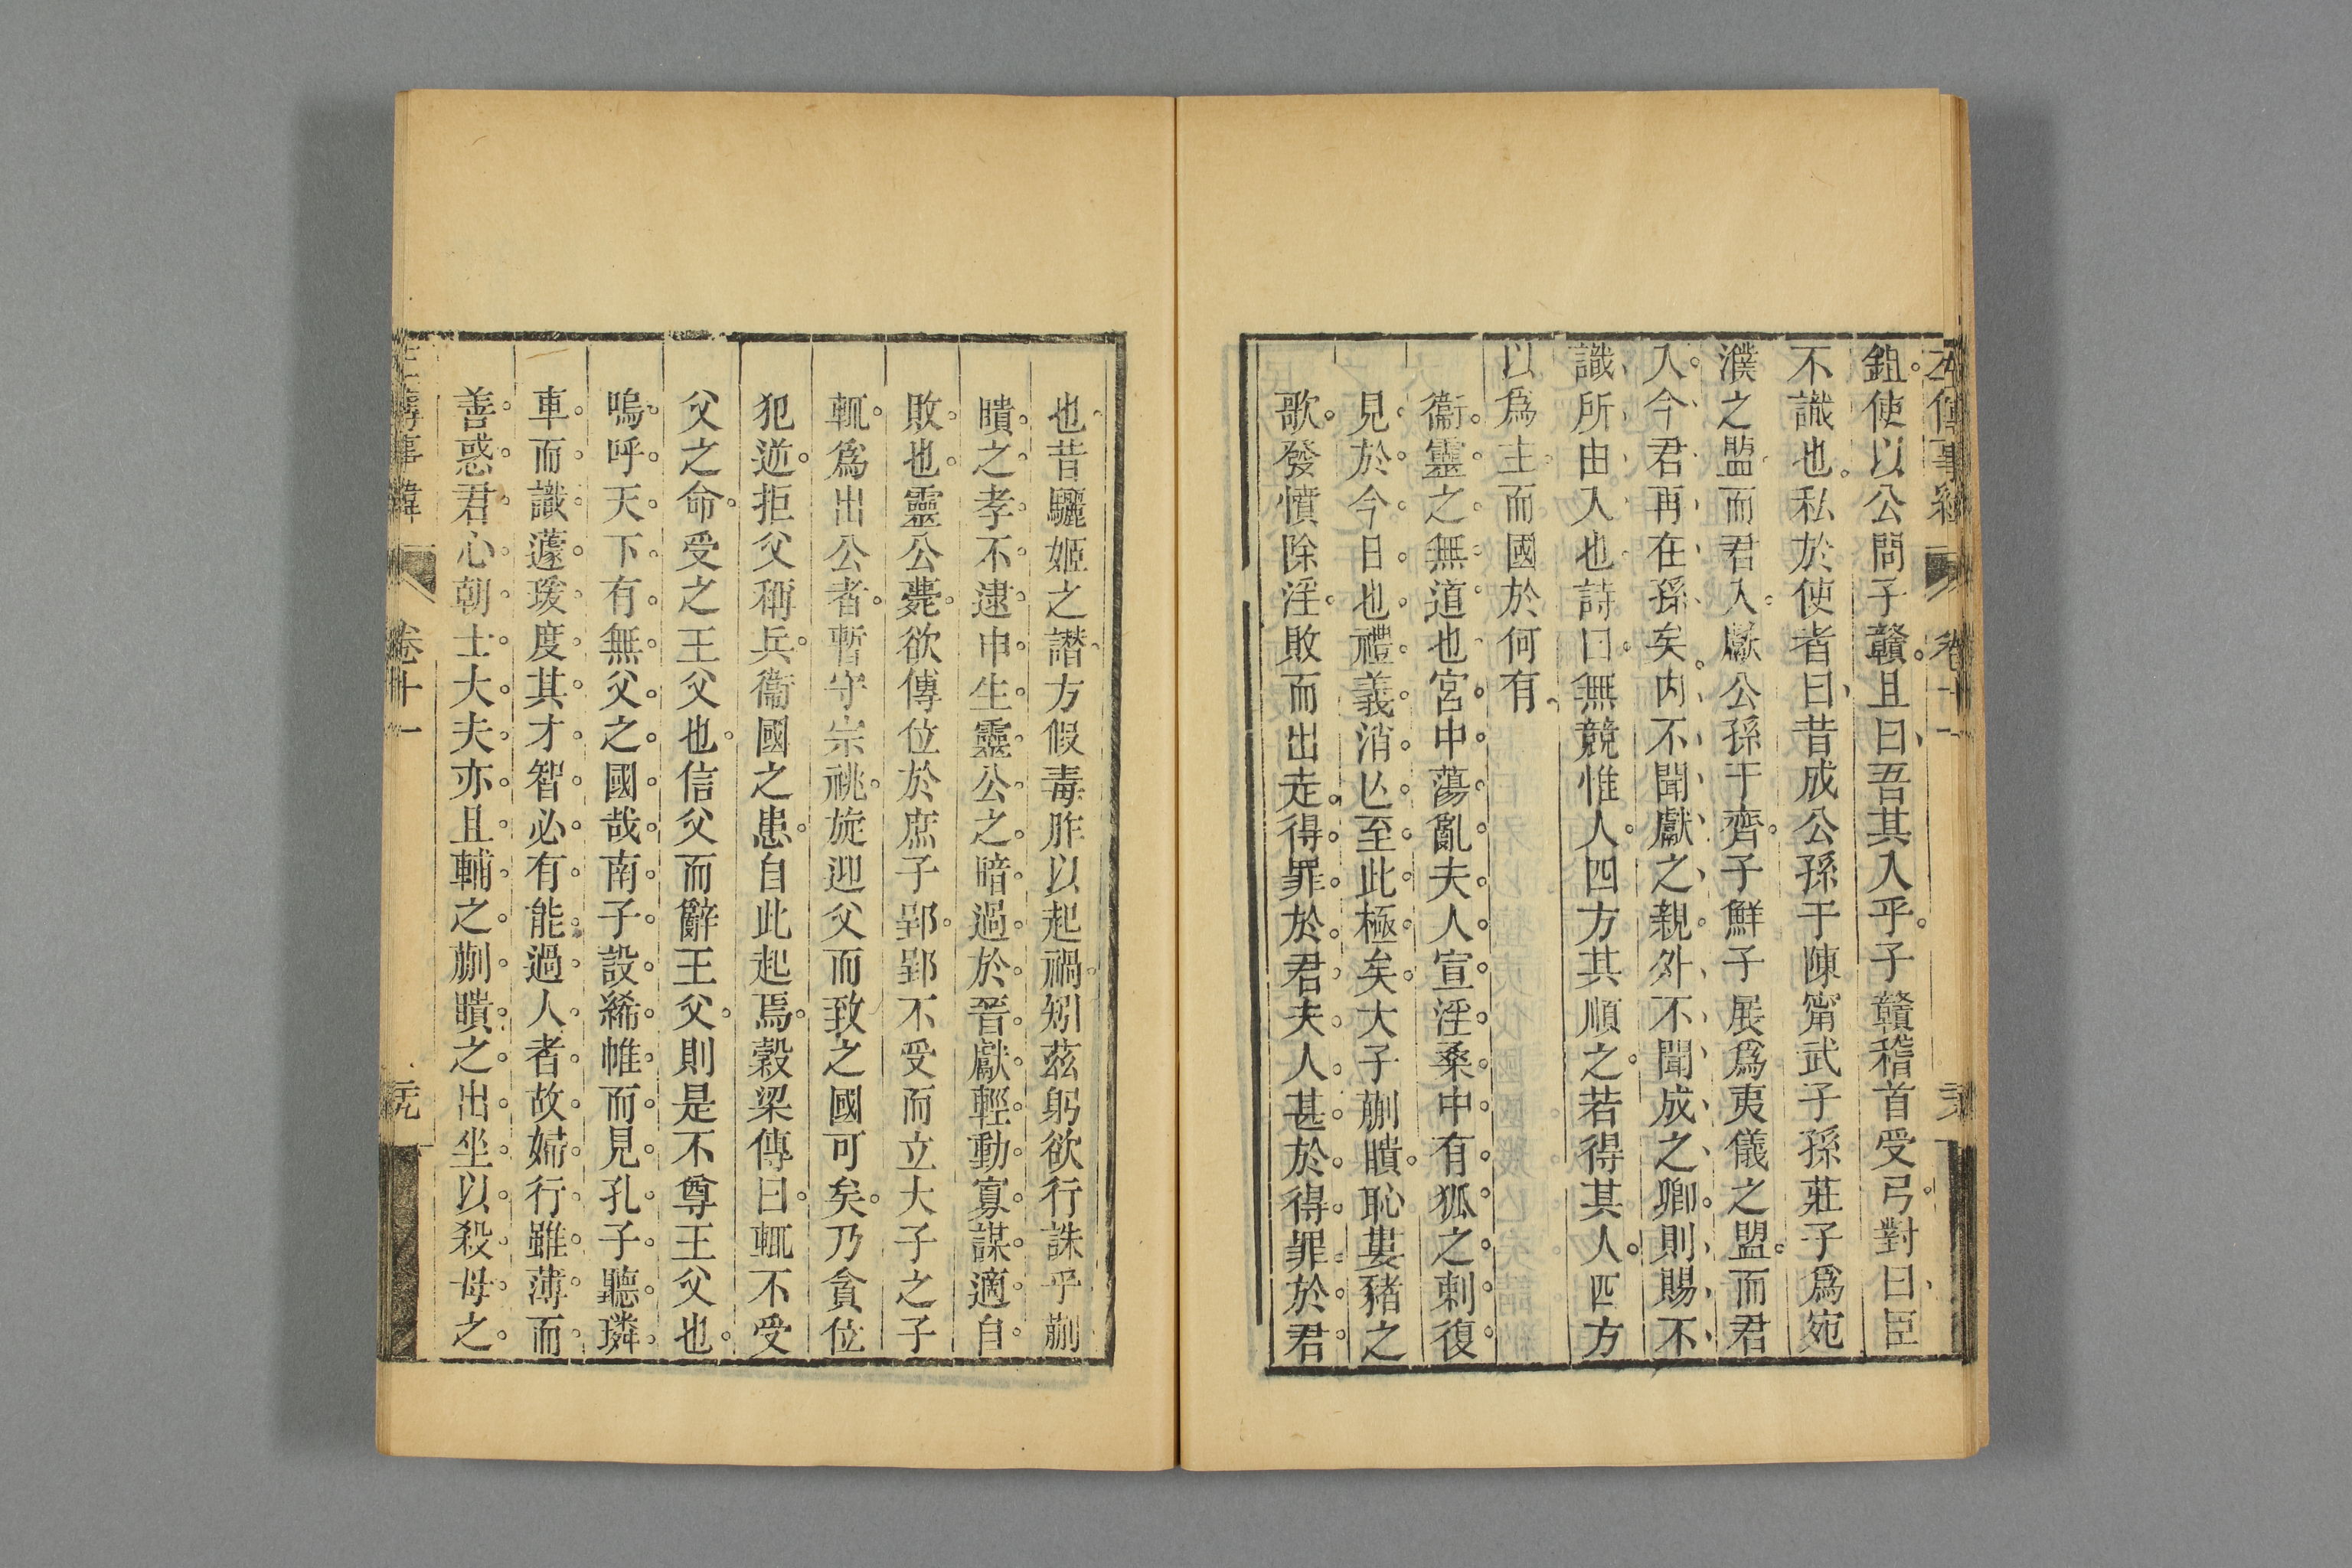 左傳事緯 卷十一
鉏使以公問子贛且曰吾其入乎子贛稽首受弓對曰臣
不識也私於使者曰昔成公孫于陳甯武子孫莊子爲宛
濮之盟而君入獻公孫于齊子鮮子展爲夷儀之盟而君
入今君再在孫矣內不聞獻之親外不聞成之卿則賜不
識所由入也詩曰無競惟人四方其順之若得其人四方
以爲主而國於何有
衞靈之無道也宮中蕩亂夫人宣淫桑中有狐之刺復
見於今日也禮義消亾至此極矣大子蒯聵恥婁豬之
歌發憤除淫敗而出走得罪於君夫人甚於得罪於君
也昔驪姬之譖方假毒胙以起禍矧茲躬欲行誅乎蒯
聵之孝不逮申生靈公之暗過於晉獻輕動寡謀適自
敗也靈公薨欲傳位於庶子郢郢不受而立大子之子
輒爲出公者暫守宗祧旋迎父而致之國可矣乃貪位
犯逆拒父稱兵衞國之患自此起焉穀梁傳曰輒不受
父之命受之王父也信父而辭王父則是不尊王父也
嗚呼天下有無父之國哉南子設絺帷而見孔子聽轔
車而識蘧瑗度其才智必有能過人者故婦行雖薄而
善惑君心朝士大夫亦且輔之蒯聵之出坐以殺母之
左傳事緯 卷十一